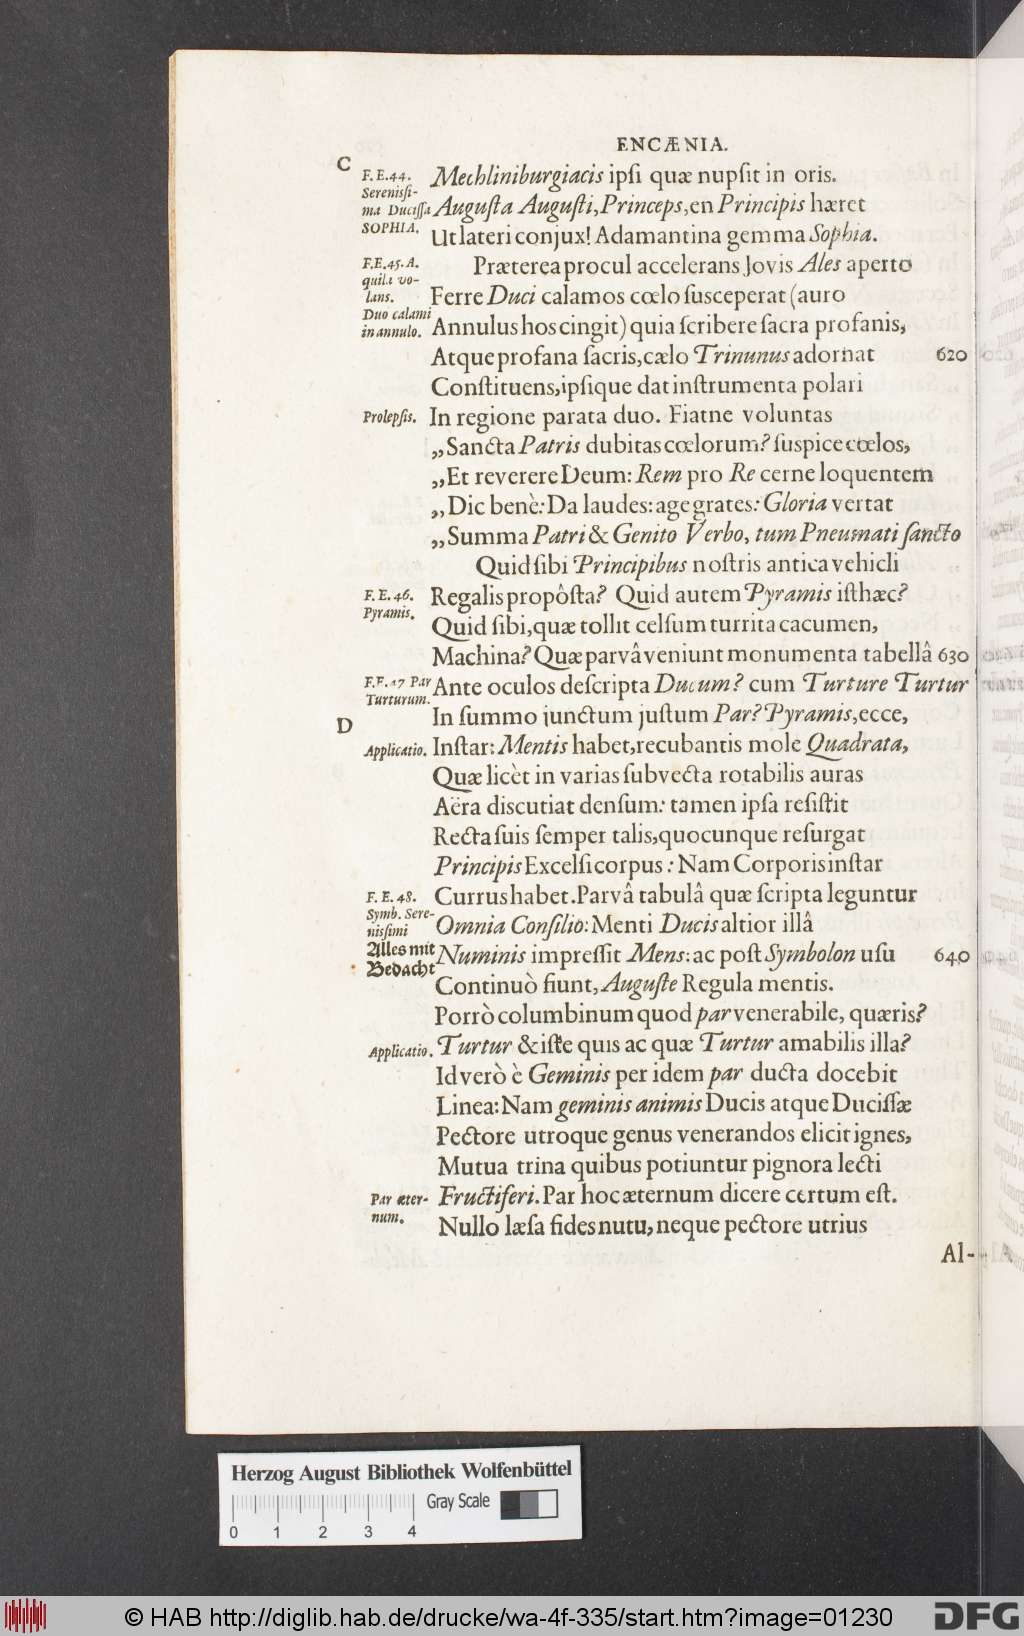 ENCÆNIA.
C
F. E. 44. Mechliniburgiacis ipſi quæ nupſit in oris.
Sereniſſi-
ma Duciſſa Auguſta Auguſti, Princeps, en Principis hæret
SOPHIA. Ut lateri conjux! Adamantina gemma Sophia.
F. E. 45. A. Præterea procul accelerans Jovis Ales aperto
quila vo-
lans. Ferre Duci calamos cœlo ſuſceperat (auro
Duo calami
in annulo. Annulus hos cingit) quia ſcribere ſacra profanis,
Atque profana ſacris, cælo Trinunus adornat 620
Conſtituens, ipſique dat inſtrumenta polari
Prolepſis. In regione parata duo. Fiatne voluntas
„Sancta Patris dubitas cœlorum? ſuſpice cœlos,
„Et reverere Deum: Rem pro Re cerne loquentem
„Dic benè: Da laudes: age grates: Gloria vertat
„Summa Patri & Genito Verbo, tum Pneumati ſancto
Quid ſibi Principibus noſtris antica vehicli
F. E. 46. Regalis propôſta? Quid autem Pyramis iſthæc?
Pyramis. Quid ſibi, quæ tollit celſum turrita cacumen,
Machina? Quæ parvâ veniunt monumenta tabellâ 630
F. E. 47 Par Ante oculos deſcripta Ducum? cum Turture Turtur
Turturum.
D In ſummo junctum juſtum Par? Pyramis, ecce,
Applicatio. Inſtar: Mentis habet, recubantis mole Quadrata,
Quæ licèt in varias ſubvecta rotabilis auras
Aëra diſcutiat denſum: tamen ipſa reſiſtit
Recta ſuis ſemper talis, quocunque reſurgat
Principis Excelſi corpus: Nam Corporis inſtar
F. E. 48. Currus habet. Parvâ tabulâ quæ ſcripta leguntur
Symb. Sere-
niſſimi Omnia Conſilio: Menti Ducis altior illâ
Alles mit Numinis impreſſit Mens: ac poſt Symbolon uſu 640
Bedacht Continuò fiunt, Auguſte Regula mentis.
Porrò columbinum quod par venerabile, quæris?
Applicatio. Turtur & iſte quis ac quæ Turtur amabilis illa?
Id verò è Geminis per idem par ducta docebit
Linea: Nam geminis animis Ducis atque Duciſſæ
Pectore utroque genus venerandos elicit ignes,
Mutua trina quibus potiuntur pignora lecti
Par æter- Fructiferi. Par hoc æternum dicere certum eſt.
num. Nullo læſa fides nutu, neque pectore utrius
Al-
Herzog August Bibliothek Wolfenbüttel
Gray Scale
0 1 2 3 4
© HAB http://diglib.hab.de/drucke/wa-4f-335/start.htm?image=01230
DFG